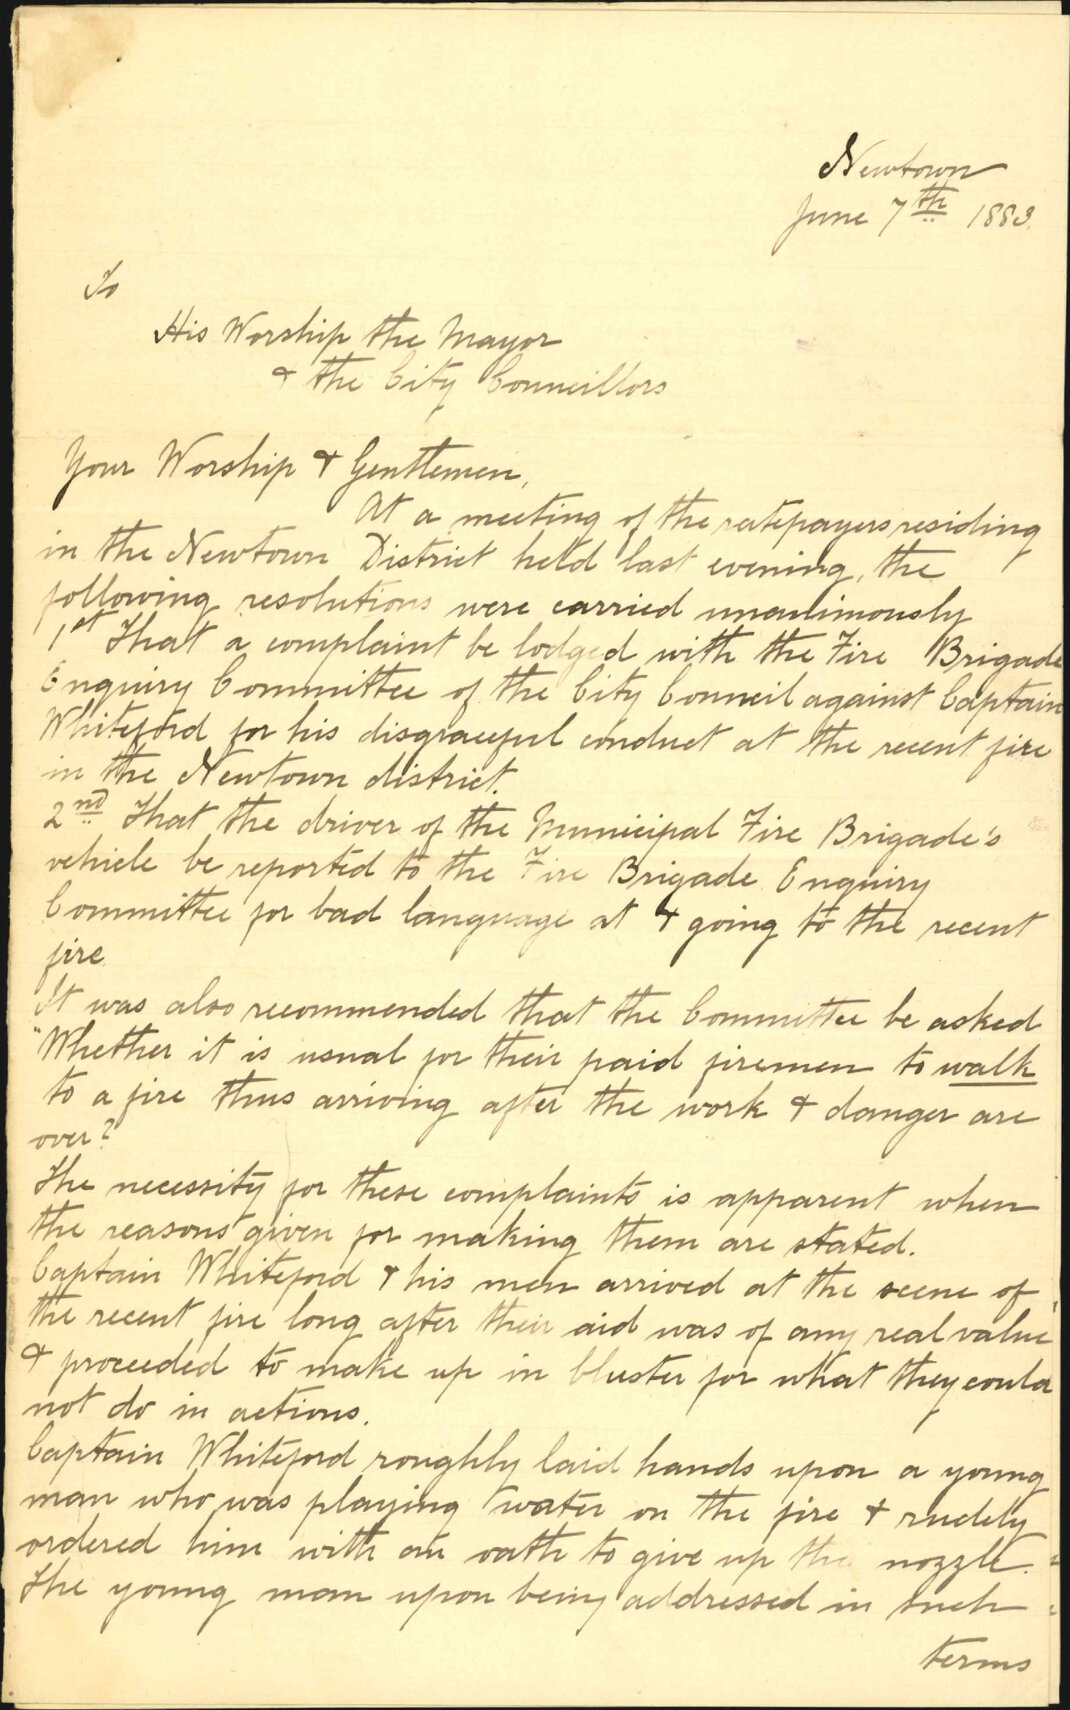 Newtown
June 7th 1883.
To
His Worship the Mayor
& the City Councillors
Your Worship & Gentlemen,
At a meeting of the ratepayers residing
in the Newtown District held last evening, the
following resolutions were carried unanimously
1st That a complaint be lodged with the Fire Brigade
Enquiry Committee of the City Council against Captain
Whiteford for his disgraceful conduct at the recent fire
in the Newtown district.
2nd That the driver of the Municipal Fire Brigade's
vehicle be reported to the Fire Brigade Enquiry
Committee for bad language at & going to the recent
fire
It was also recommended that the Committee be asked
"Whether it is usual for their paid firemen to walk
to a fire thus arriving after the work & danger are
over?
The necessity for these complaints is apparent when
the reasons given for making them are stated.
Captain Whiteford & his men arrived at the scene of
the recent fire long after their aid was of any real value
& proceeded to make up in bluster for what they could
not do in actions.
Captain Whiteford roughly laid hands upon a young
man who was playing water on the fire & rudely
ordered him with an oath to give up the nozzle.
The young man upon being addressed in such
terms